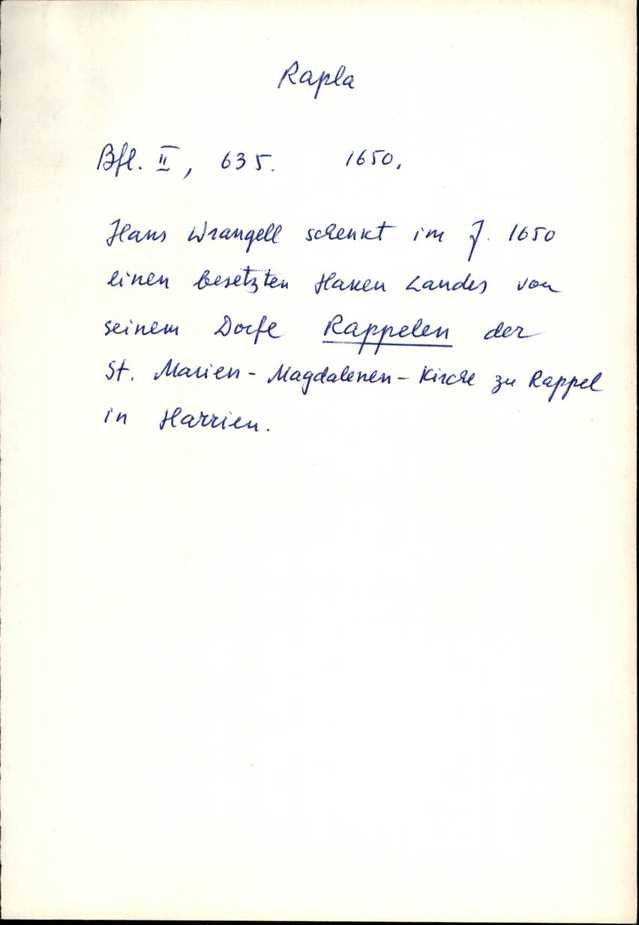 Rapla
Bfl. II, 635. 1650.
Hans Wrangell schenkt im J. 1650
einen besetzten Haken Landes von
seinem Dorfe Rappelen der
St. Marien-Magdalenen-Kirche zu Rappel
in Harrien.